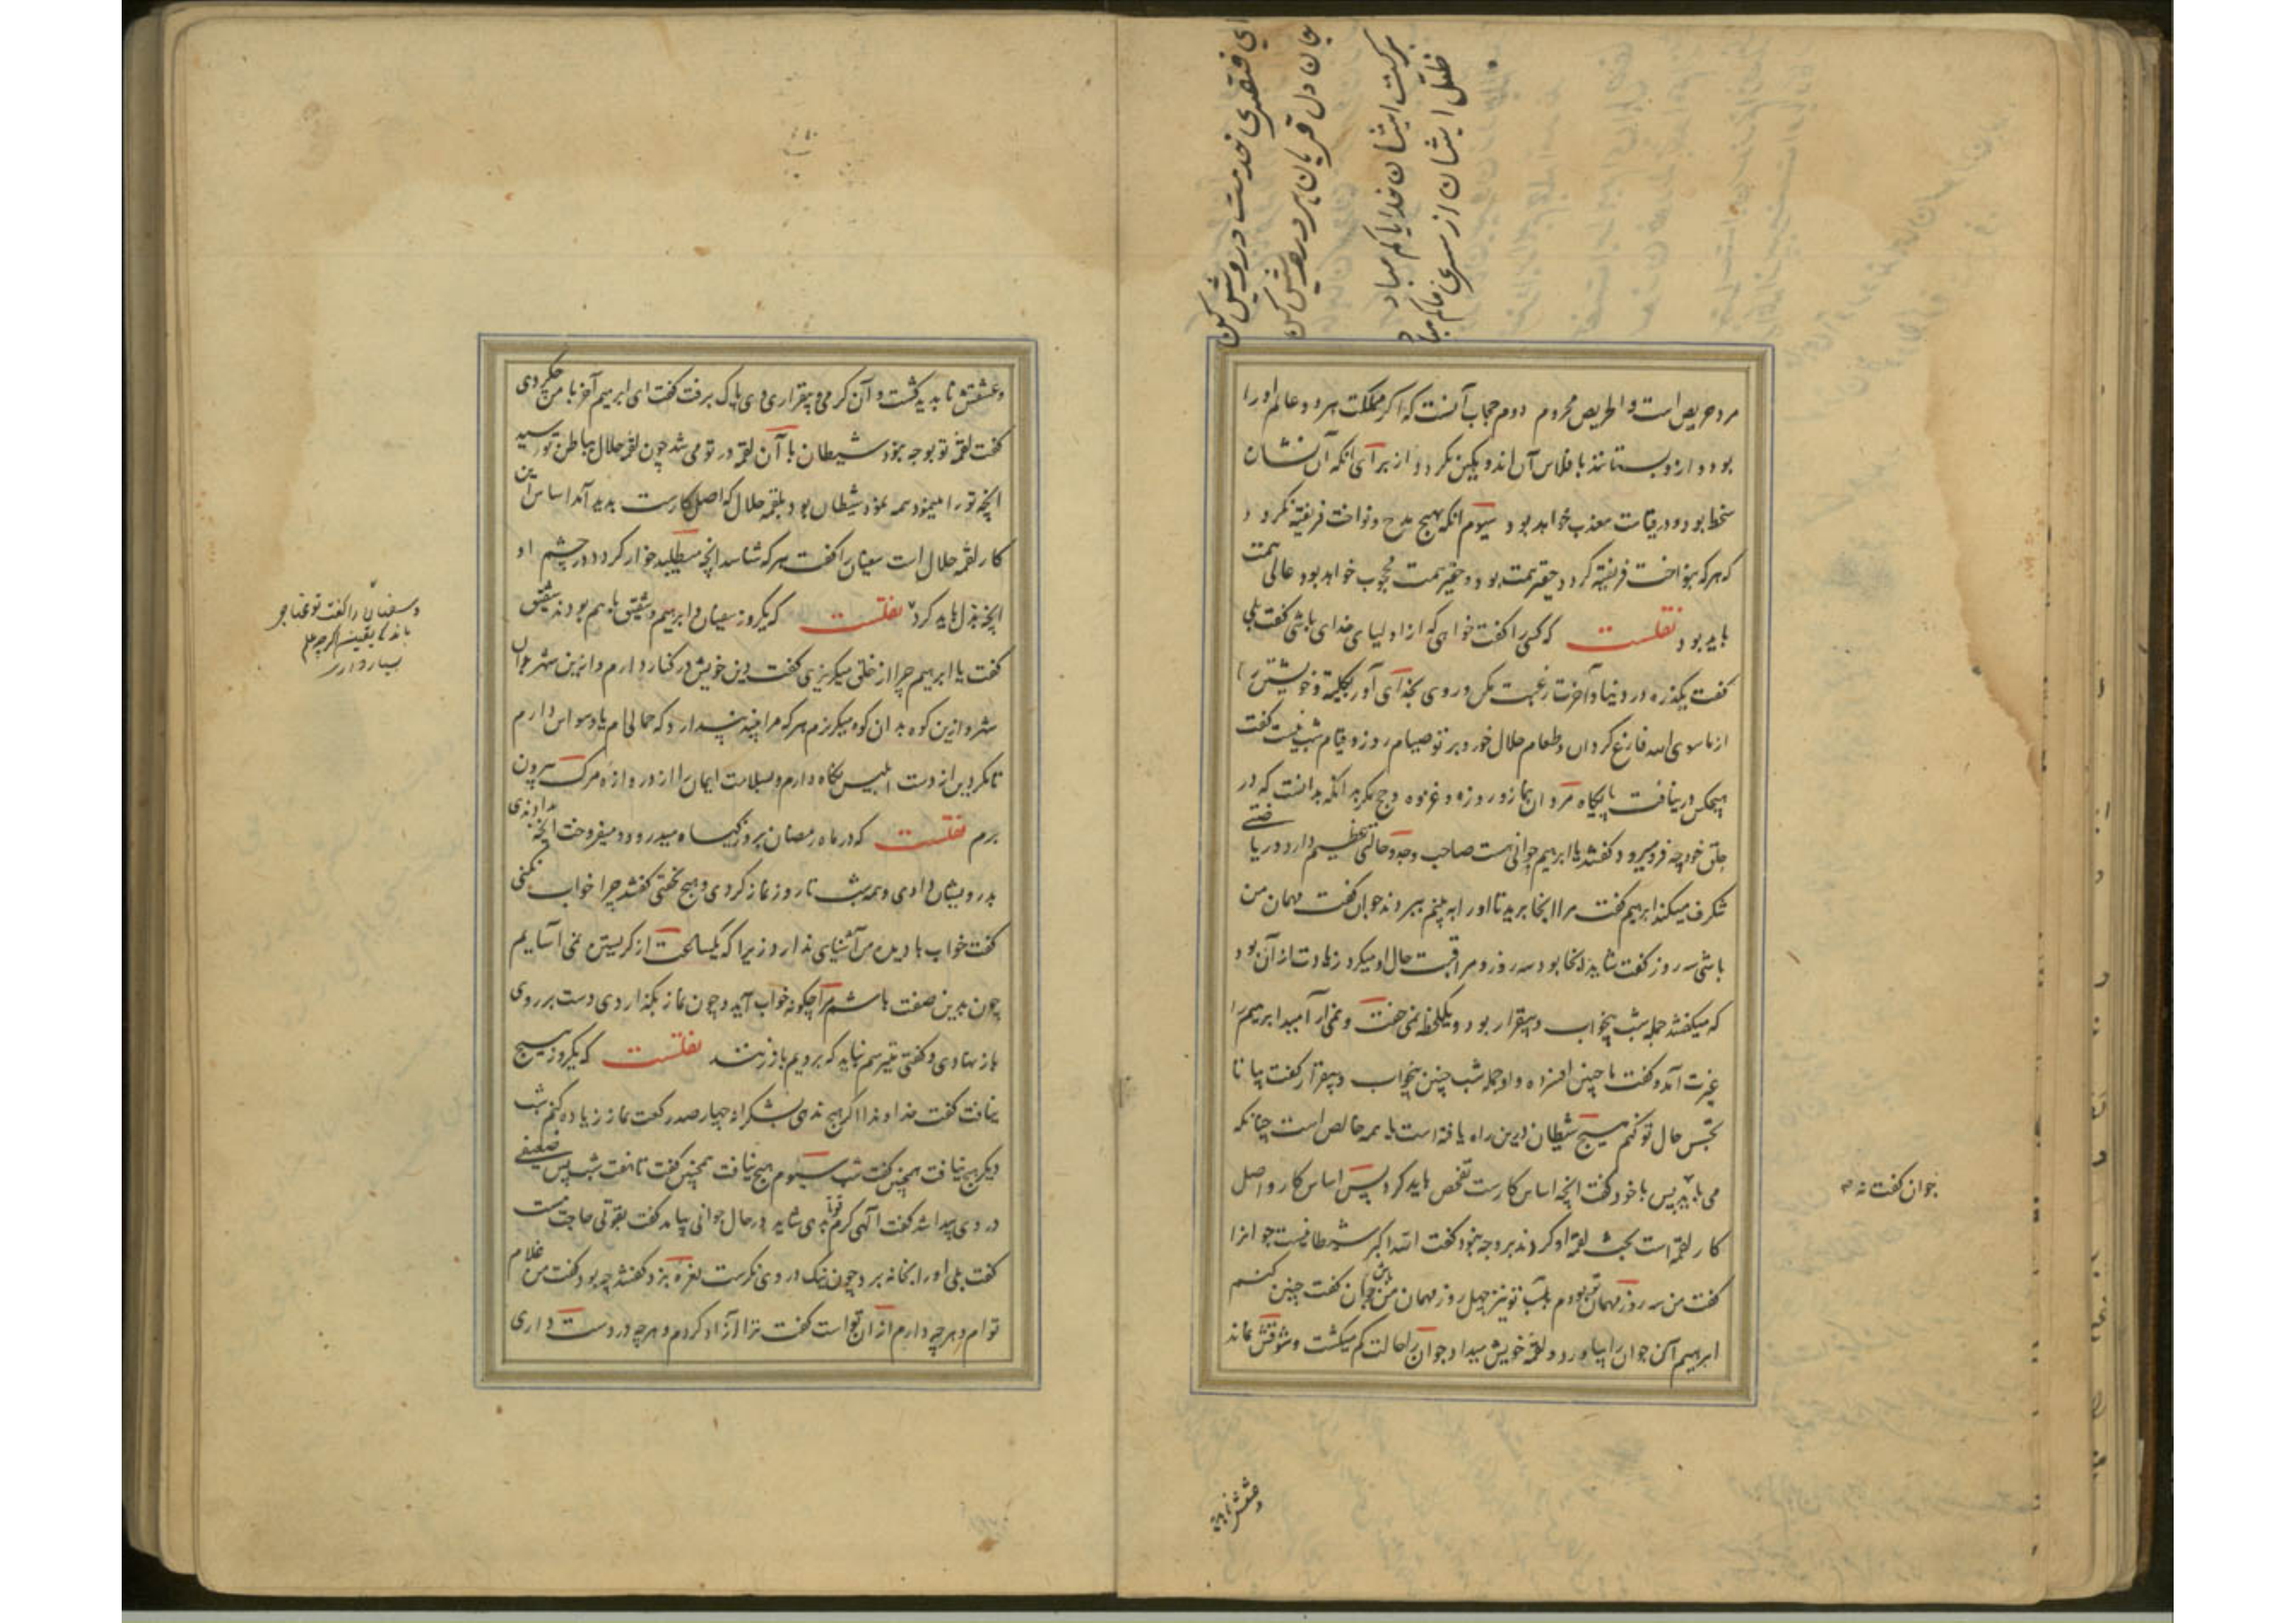 ای فقیری خدمت درویش کن
جان دل قربان هر درویش کن
برکت ایشان خدایا کم مباد
ظل ایشان از سری ما کم مباد
مرد حریص است و الحریص محروم دوم حجاب آنست که اگر مملکت هر دو عالم او را
بود و ازو بستانند بافلاس آن اندوهگین نگردد از برای آنکه آن نشان
سخط بود و در قیامت معذب خواهد بود سیوم آنکه بهیچ مدح و نواخت فریفته نگردد
که هر که بنواخت فریفته گردد حقیر همت بود و حقیر همت محجوب خواهد بود عالی همت
باید بود نقلست که کسی را گفت خواهی که از اولیای خدای باشی گفت بلی
گفت یکذره در دنیا و آخرت رغبت مکن و روی بخدای آور بکلیة و خویشتن را
از ما سوی الله فارغ گردان و طعام حلال خور و بر تو صیام روز و قیام شب نیست گفت
هیچکس در نیافت پایگاه مردان بنماز و روزه و غزوه و حج مگر بدانکه بدانست که در
حلق خود چه فرو میبرد گفتند یا ابرهیم جوانی هست صاحب وجد و حالتی عظیم دارد و ریاضتی
شگرف میکند ابرهیم گفت مرا آنجا برید تا او را ببینم ببردند جوان گفت مهمان من
باشی سه روز گفت شاید آنجا بود سه روز و مراقبت حال او میکرد زیادت از آن بود
که میگفتند جمله شب بیخواب و بیقرار بود و یکلحظه نمی خفت و نمی آرامید ابرهیم را
غیرت آمد و گفت ما چنین افسرده و او جمله شب چنین بیخواب و بیقرار گفت بیا تا
تجسس حال تو کنم هیچ شیطان درین راه یافته است یا همه خالص است چنانکه
می باید پس با خود گفت آنچه اساس کارست تفحص باید کرد پس اساس کار و اصل
کار لقمه است بحث لقمه او کردند بر وجه نبود گفت الله اکبر شیطانیست جوانرا
گفت من سه روز مهمان تو بودم بیا تو نیز چهل روز مهمان من باش جوان گفت چنین کنم
ابرهیم آن جوان را بیاورد و لقمه خویش میداد جوان را حالت گم میگشت و شوقش نماند
جوان گفت نه
وعشقش ناپدید
وعشقش ناپدید گشت و آن گرمی و بیقراری وی پاک برفت گفت ای ابرهیم آخر با من چکردی
گفت لقمه تو بوجه نبود شیطان با آن لقمه در تو می شد چون لقمه حلال بباطن تو رسید
آنچه تو را مینمود همه نمود شیطان بود بلقمه حلال که اصل کارست پدید آمد اساس این
کار لقمه حلال است سفیان را گفت هر که شناسد آنچه میطلبد خوار گردد در چشم او
آنچه بذل باید کرد نقلست که یکروز سفیان و ابرهیم و شقیق با هم بودند شقیق
گفت یا ابرهیم چرا از خلق میگریزی گفت دین خویش در کنار دارم و ازین شهر بدان
شهر و ازین کوه بدان کوه میگریزم هر که مرا بیند پندارد که حمالی ام یا وسواس دارم
تا مگر دین از دست ابلیس نگاه دارم و بسلامت ایمان را از دروازه مرگ بیرون
برم نقلست که در ماه رمضان بروز گیاه میدرودی و میفروخت آنچه بدادندی
بدرویشان دادی و همه شب تا روز نماز کردی و هیچ نخفتی گفتند چرا خواب نمیکنی
گفت خواب با دیده من آشنایی ندارد زیرا که یکساعت از گریستن نمی آسایم
چون بدین صفت باشم مرا چگونه خواب آید و چون نماز بگذاردی دست بر روی
باز نهادی و گفتی میترسم نباید که برویم باز زنند نقلست که یکروز هیچ
نیافت گفت خداوندا اگر هیچ ندهی بشکرانه چهار صد رکعت نماز زیاده کنم شب
دیگر هیچ نیافت همچنین گفت شب سیوم هیچ نیافت همچنین گفت تا هفت شب پس ضعیفی
در وی پیدا شد گفت الهی کرم قوتی بدهی شاید در حال جوانی بیامد گفت بقوتی حاجت هست
گفت بلی او را بخانه برد چون نیک در وی نگرست نعره بزد گفتند چه بود گفت من غلام
توام و هر چه دارم از آن تو است گفت ترا آزاد کردم و هر چه در دست داری
و سفیان را گفت تو محتاجی
باندک یقین اگر چه علم
بسیار داری